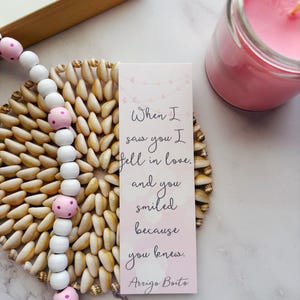 When I
saw you I
fell in love.
and you
smiled
because
you knew.
Arrigo Boito